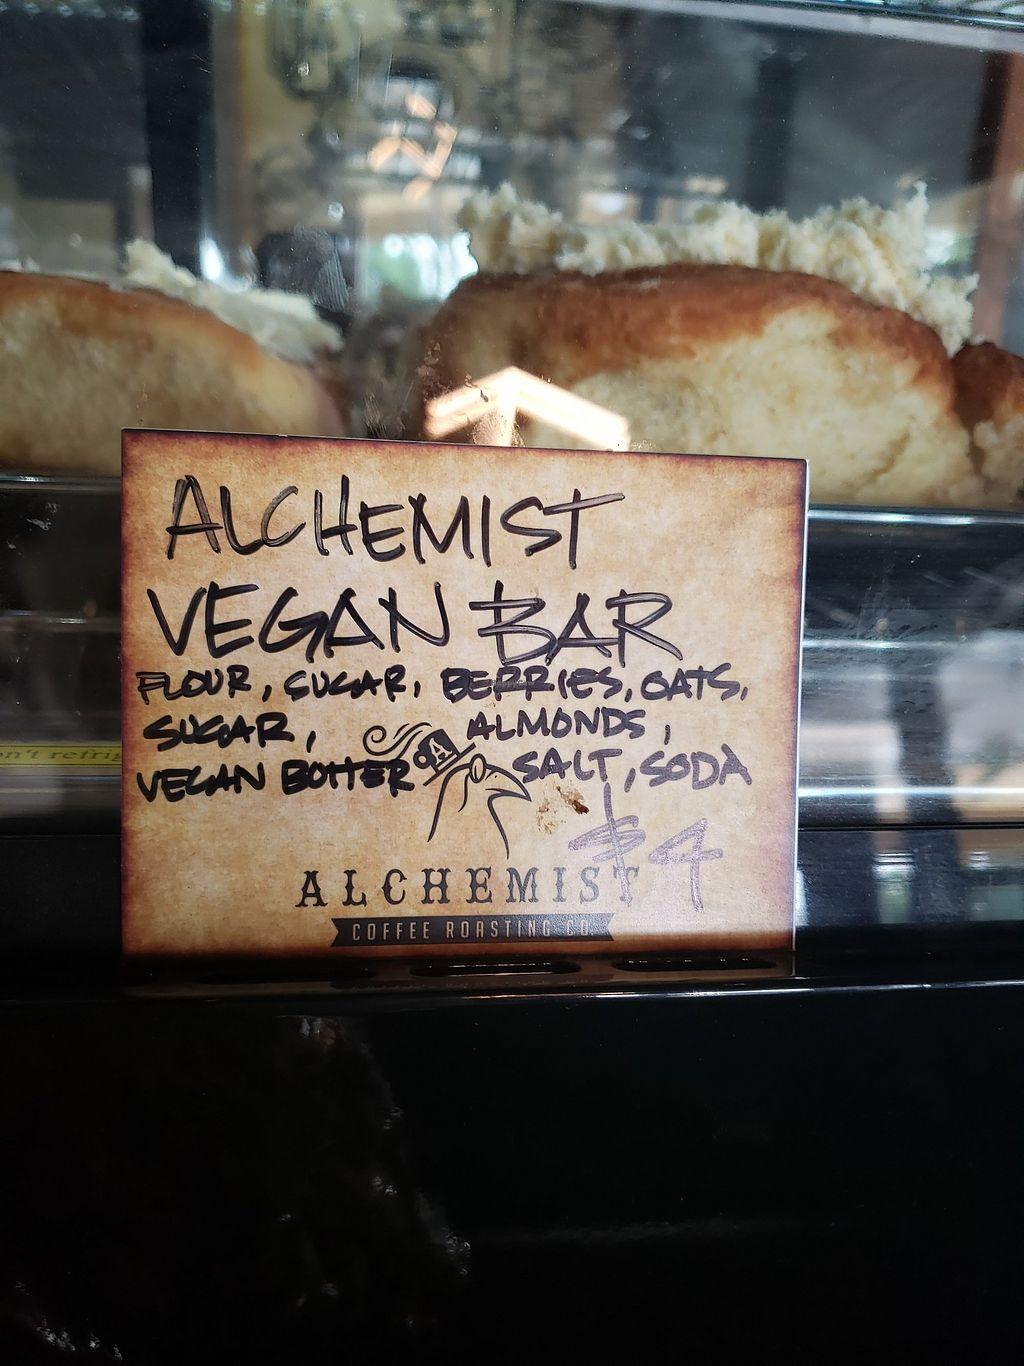 ALCHEMIST
VEGAN BAR
FLOUR, SUGAR, BERRIES, OATS,
SUGAR, ALMONDS,
VEGAN BUTTER SALT, SODA
$4
A
ALCHEMIST
COFFEE ROASTING CO.
on't refrig